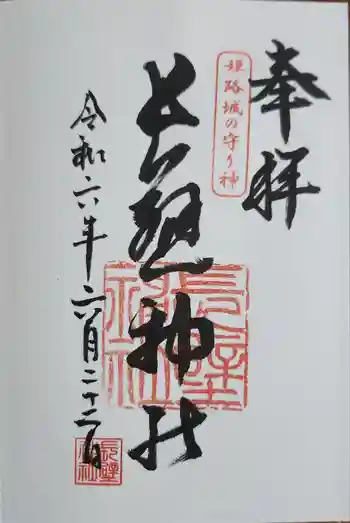 奉拝
姫路城の守り神
長壁神社
長壁神社
令和六年六月二十二日
長壁神社